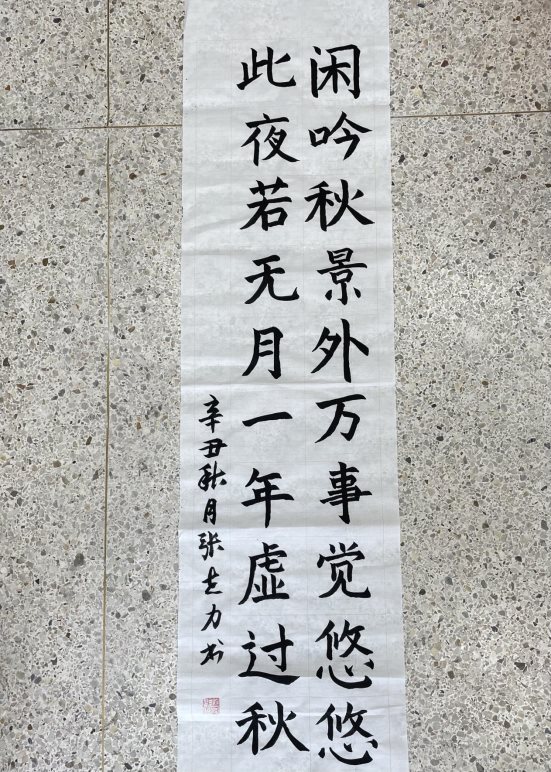 闲吟秋景外万事觉悠悠
此夜若无月一年虚过秋
辛丑秋月张志力书